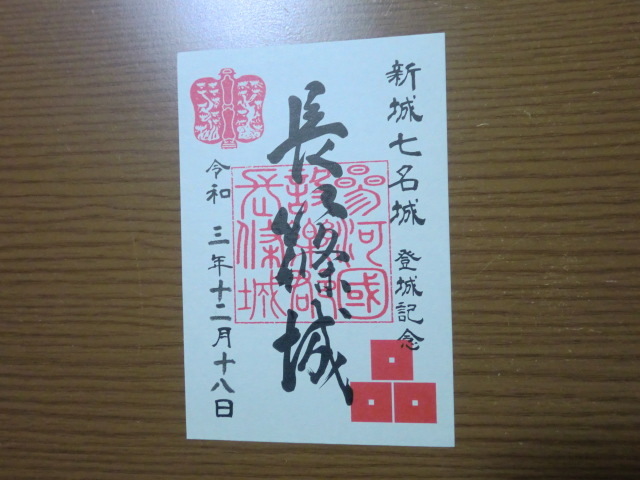 新城七名城 登城記念
長之篠城
參河國
設樂郡
長篠城
令和 三年十二月十八日